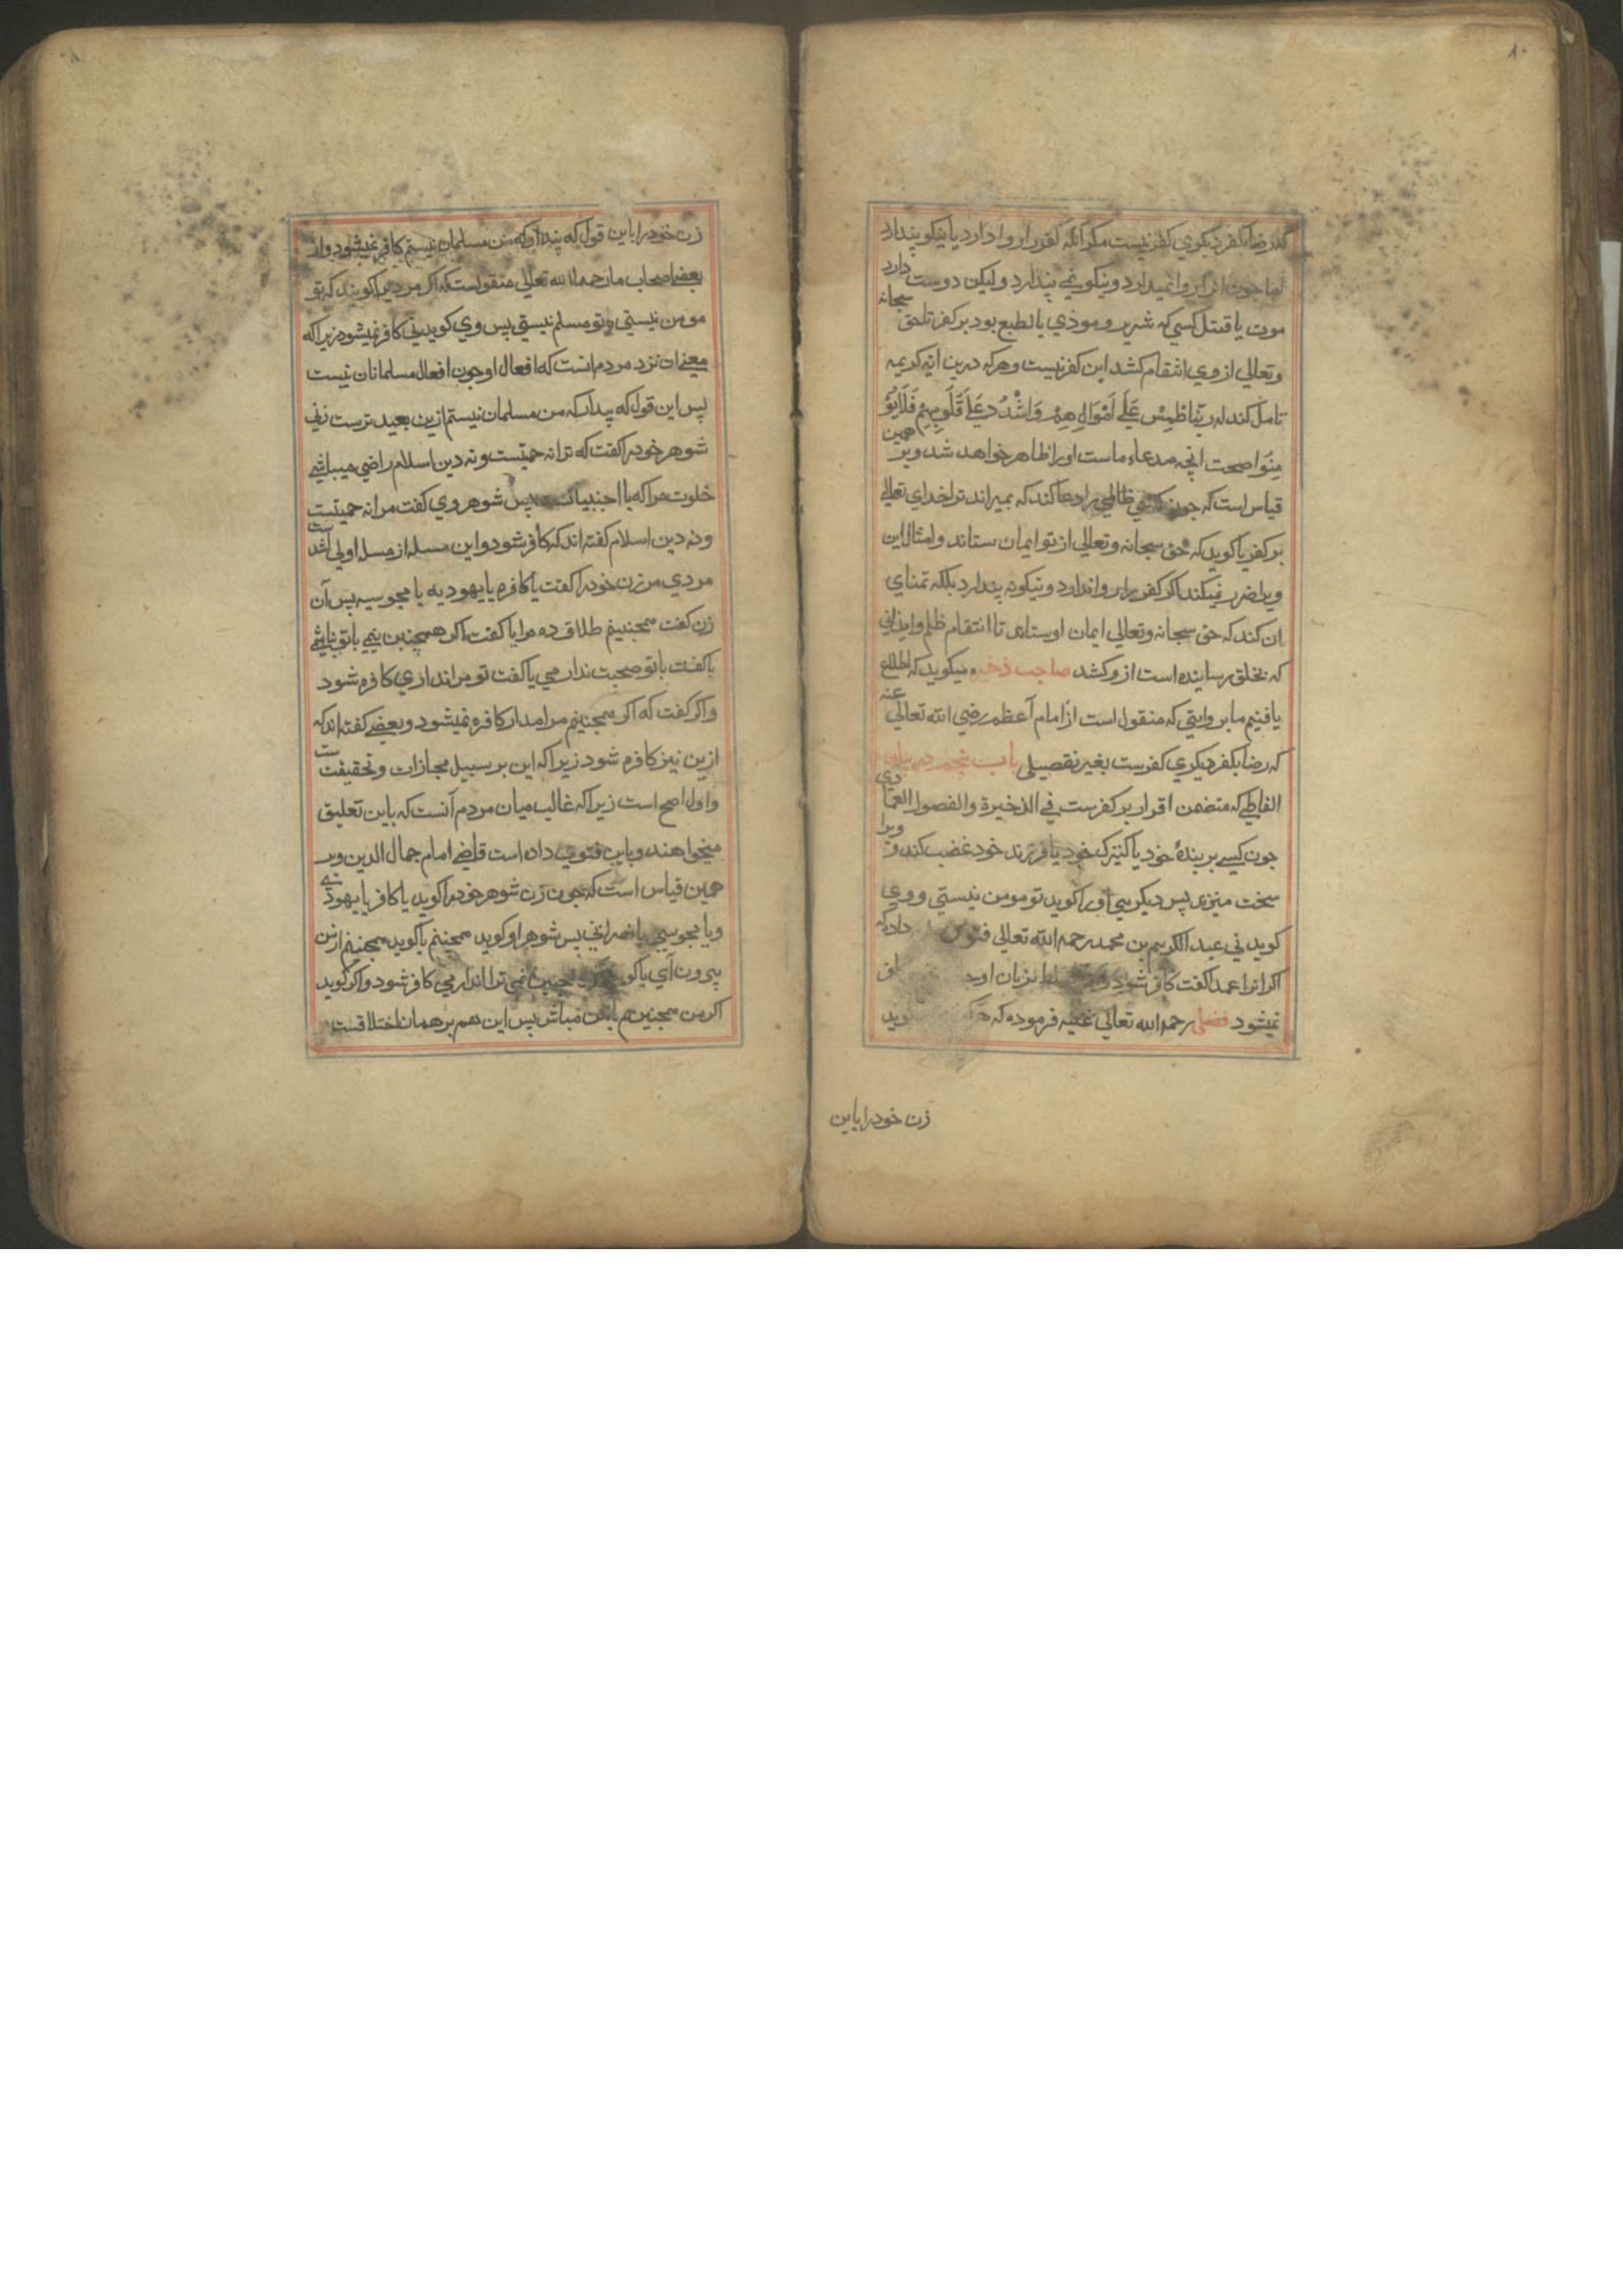 ۸۰
که رضا بکفر دیکری کفر نیست مکر انکه کفر را روا دارد یا نیکو پندارد
اما چون انرا روا نمیدارد و نیکو نمی پندارد و لیکن دوست دارد
موت یا قتل کسی که شریر و موذی بالطبع بود بر کفر تا حق سبحانه
وتعالی از وی انتقام کشد این کفر نیست و هر که درین ایه کریمه
تامل کند که ربنا اطمس علی اموالهم واشدد علی قلوبهم فلا یؤ
منوا صحت انچه مدعاء ماست او را ظاهر خواهد شد و بر همین
قیاس است که چون ظالمی را دعا کند که بمیراند ترا خدای تعالی
بر کفر یا کوید که حق سبحانه وتعالی از تو ایمان ستاند و امثال این
ویرا ضرر نمیکند اکر کفر را روا ندارد و نیکو نه پندارد بلکه تمنای
ان کند که حق سبحانه وتعالی ایمان او ستاند تا انتقام ظلم و ایذائی
که بخلق رسانیده است از و کشد صاحب ذخیره میکوید که اطلاع
یافتیم ما بر روایتی که منقول است از امام اعظم رضی الله تعالی عنه
که رضا بکفر دیکری کفرست بغیر تفصیلی باب پنجم در بیان
الفاظی که متضمن اقرار بر کفرست فی الذخیرة والفصول العمادی
چون کسی بر بندهٔ خود یا کنیزک خود یا فرزند خود غضب کند و ویرا
سخت میزند پس دیکری او را کوید تو مومن نیستی و وی
کوید نی عبد الکریم بن محمد رحمه الله تعالی فتوی داده که
اکر انرا عمدا کفت کافر شود بزبان او
نمیشود فضلی رحمه الله تعالی علیه فرموده که کوید
زن خود را باین
زن خود را باین قول که پندار که من مسلمان نیستم کافر نمیشود و از
بعض اصحاب ما رحمه الله تعالی منقولست که اکر مردیرا کویند که تو
مومن نیستی و تو مسلم نیستی پس وی کوید نی کافر نمیشود زیرا که
معنی ان نزد مردم انست که افعال او چون افعال مسلمانان نیست
پس این قول که پندار که من مسلمان نیستم ازین بعید ترست زنی
شوهر خود را کفت که ترا نه حمیتست و نه دین اسلام راضی میباشی
خلوت مرا که با اجنبیانست پس شوهر وی کفت مرا نه حمیتست
و نه دین اسلام کفته اند که کافر شود و این مسله از مسله اولی اشد ست
مردی مر زن خود را کفت یا کافره یا یهودیه یا مجوسیه پس آن
زن کفت همچنینم طلاق ده مرا یا کفت اکر همچنین نیمی با تو نباشمی
یا کفت با تو صحبت ندارمی یا کفت تو مرا نداری کافره شود
و اکر کفت که اکر همچنینم مرا مدار کافره نمیشود و بعضی کفته اند که
ازین نیز کافره شود زیرا که این بر سبیل مجازات و تحقیقت ست
و اول اصح است زیرا که غالب میان مردم آنست که باین تعلیق
میخواهند و باین فتوی داده است قاضی امام جمال الدین و بر
همین قیاس است که چون زن شوهر خود را کوید یا کافر یا یهودی
و یا مجوسی یا نصرانی پس شوهر او کوید همچنینم یا کوید همچنینم از من
بیرون آی یا کوید نمی ترا ندارمی کافر شود و اکر کوید
اکر من همچنینم با من مباش پس این هم بر همان اختلافست